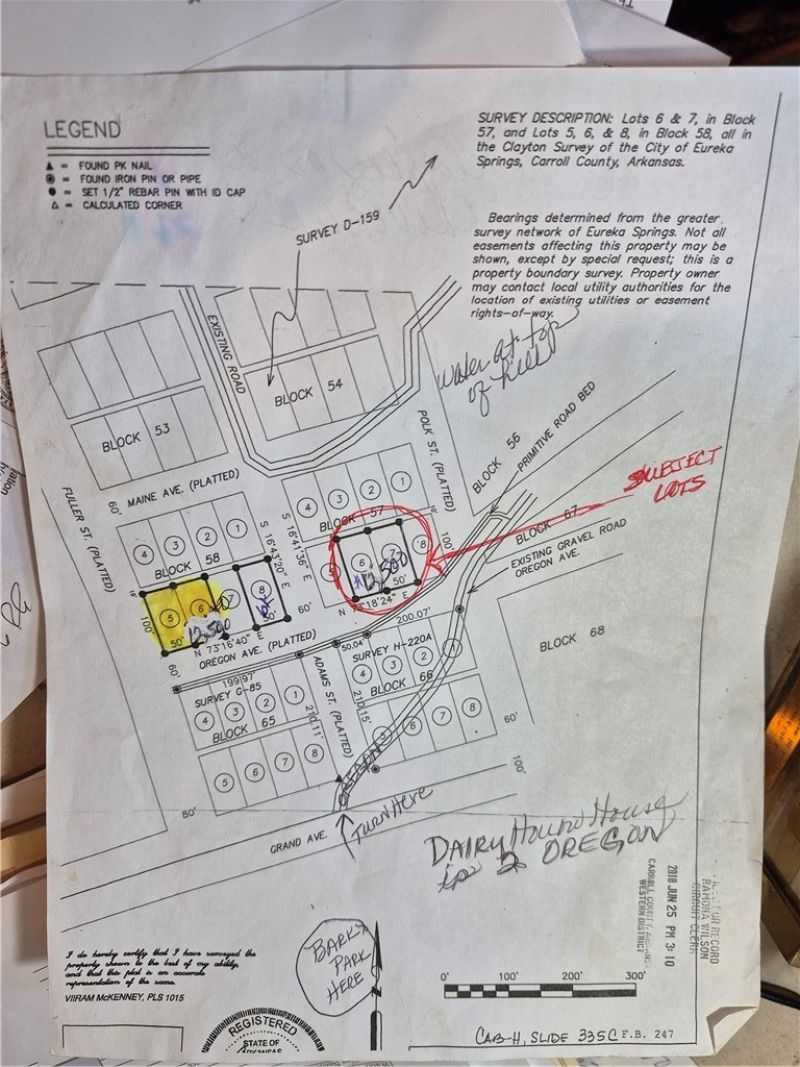 LEGEND
▲ = FOUND PK NAIL
◉ = FOUND IRON PIN OR PIPE
● = SET 1/2" REBAR PIN WITH ID CAP
△ = CALCULATED CORNER
SURVEY DESCRIPTION: Lots 6 & 7, in Block
57, and Lots 5, 6, & 8, in Block 58, all in
the Clayton Survey of the City of Eureka
Springs, Carroll County, Arkansas.
Bearings determined from the greater
survey network of Eureka Springs. Not all
easements affecting this property may be
shown, except by special request; this is a
property boundary survey. Property owner
may contact local utility authorities for the
location of existing utilities or easement
rights-of-way.
SURVEY D-159
EXISTING ROAD
BLOCK 54
BLOCK 53
water at top
of hill
POLK ST. (PLATTED)
BLOCK 56
PRIMITIVE ROAD BED
SUBJECT
LOTS
MAINE AVE. (PLATTED)
FULLER ST. (PLATTED)
60'
4 3 2 1
BLOCK 57
4 3 2 1
BLOCK 58
S 16°43'20" E
S 16°41'36" E
100'
BLOCK 67
EXISTING GRAVEL ROAD
OREGON AVE.
5 6 7 8
100'
50'
12,500
50'
60'
5 6 7 8
12,500
50'
N 73°18'24" E
N 73°16'40" E
OREGON AVE. (PLATTED)
60'
200.07'
50.04'
199.97'
SURVEY H-220A
4 3 2 1
BLOCK 66
BLOCK 68
SURVEY G-85
4 3 2 1
BLOCK 65
ADAMS ST. (PLATTED)
210.11'
210.15'
5 6 7 8
5 6 7 8
60'
100'
80'
OREGON
GRAND AVE.
TURN HERE
DAIRY Hound House
is 2 OREGON
CARROLL COUNTY, ARKANSAS
WESTERN DISTRICT
2018 JUN 25 PM 3:10
FOR RECORD
RAMONA WILSON
CIRCUIT CLERK
BARK
PARK
HERE
I do hereby certify that I have surveyed the
property shown to the best of my ability,
and that this plat is an accurate
representation of the same.
VIIRAM McKENNEY, PLS 1015
REGISTERED
STATE OF
0' 100' 200' 300'
CAB-H, SLIDE 335C F.B. 247